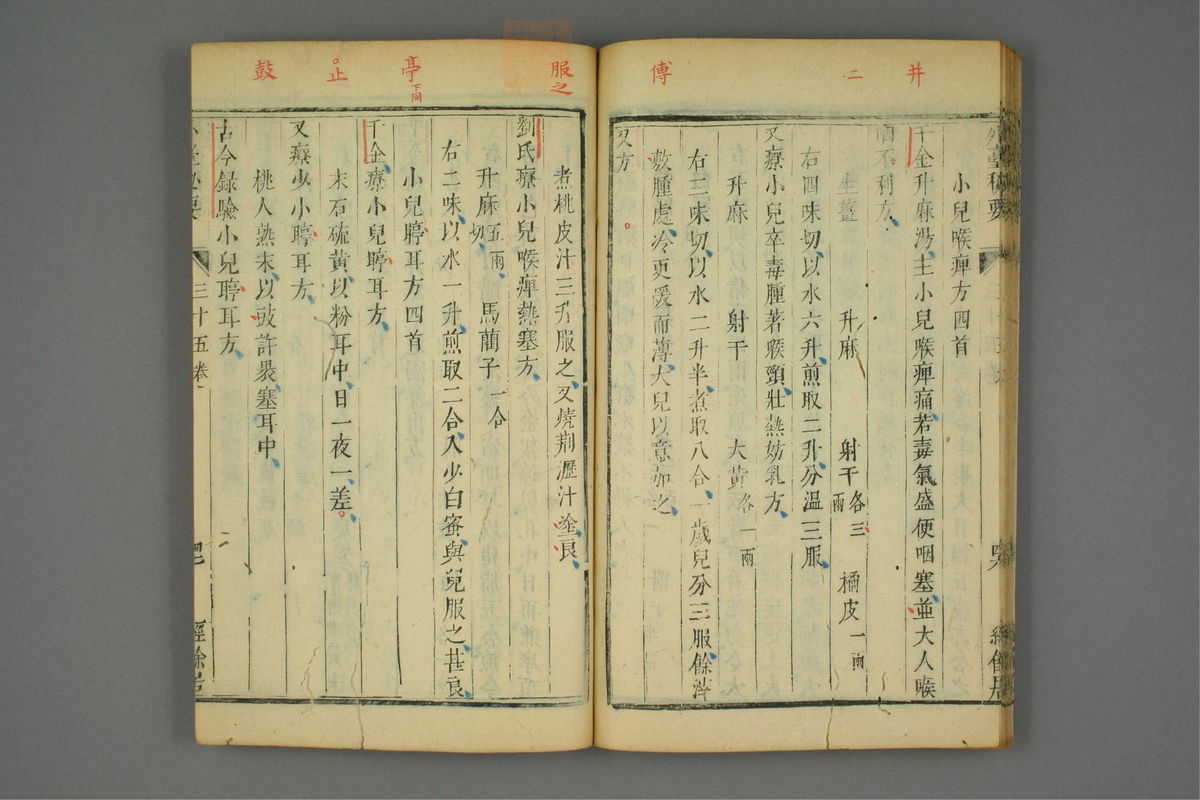 井
二
傅
小兒喉痺方四首
千金升麻湯主小兒喉痺痛若毒氣盛便咽塞並大人喉
咽不利方
生薑 升麻 射干各三兩 橘皮一兩
右四味切以水六升煎取二升分溫三服
又療小兒卒毒腫著喉頸壯熱妨乳方
升麻 射干 大黃各一兩
右三味切以水二升半煮取八合一歲兒分三服餘滓
敷腫處冷更煖而薄大兒以意加之
又方
服之
亭下同
止
鼓
煮桃皮汁三升服之又燒荆瀝汁塗良
劉氏療小兒喉痺熱塞方
升麻五兩切 馬藺子一合
右二味以水一升煎取二合入少白蜜與兒服之甚良
小兒聤耳方四首
千金療小兒聤耳方
末石硫黃以粉耳中日一夜一差
又療少小聤耳方
桃人熟末以豉許裹塞耳中
古今録驗小兒聤耳方
三十五卷
經餘居